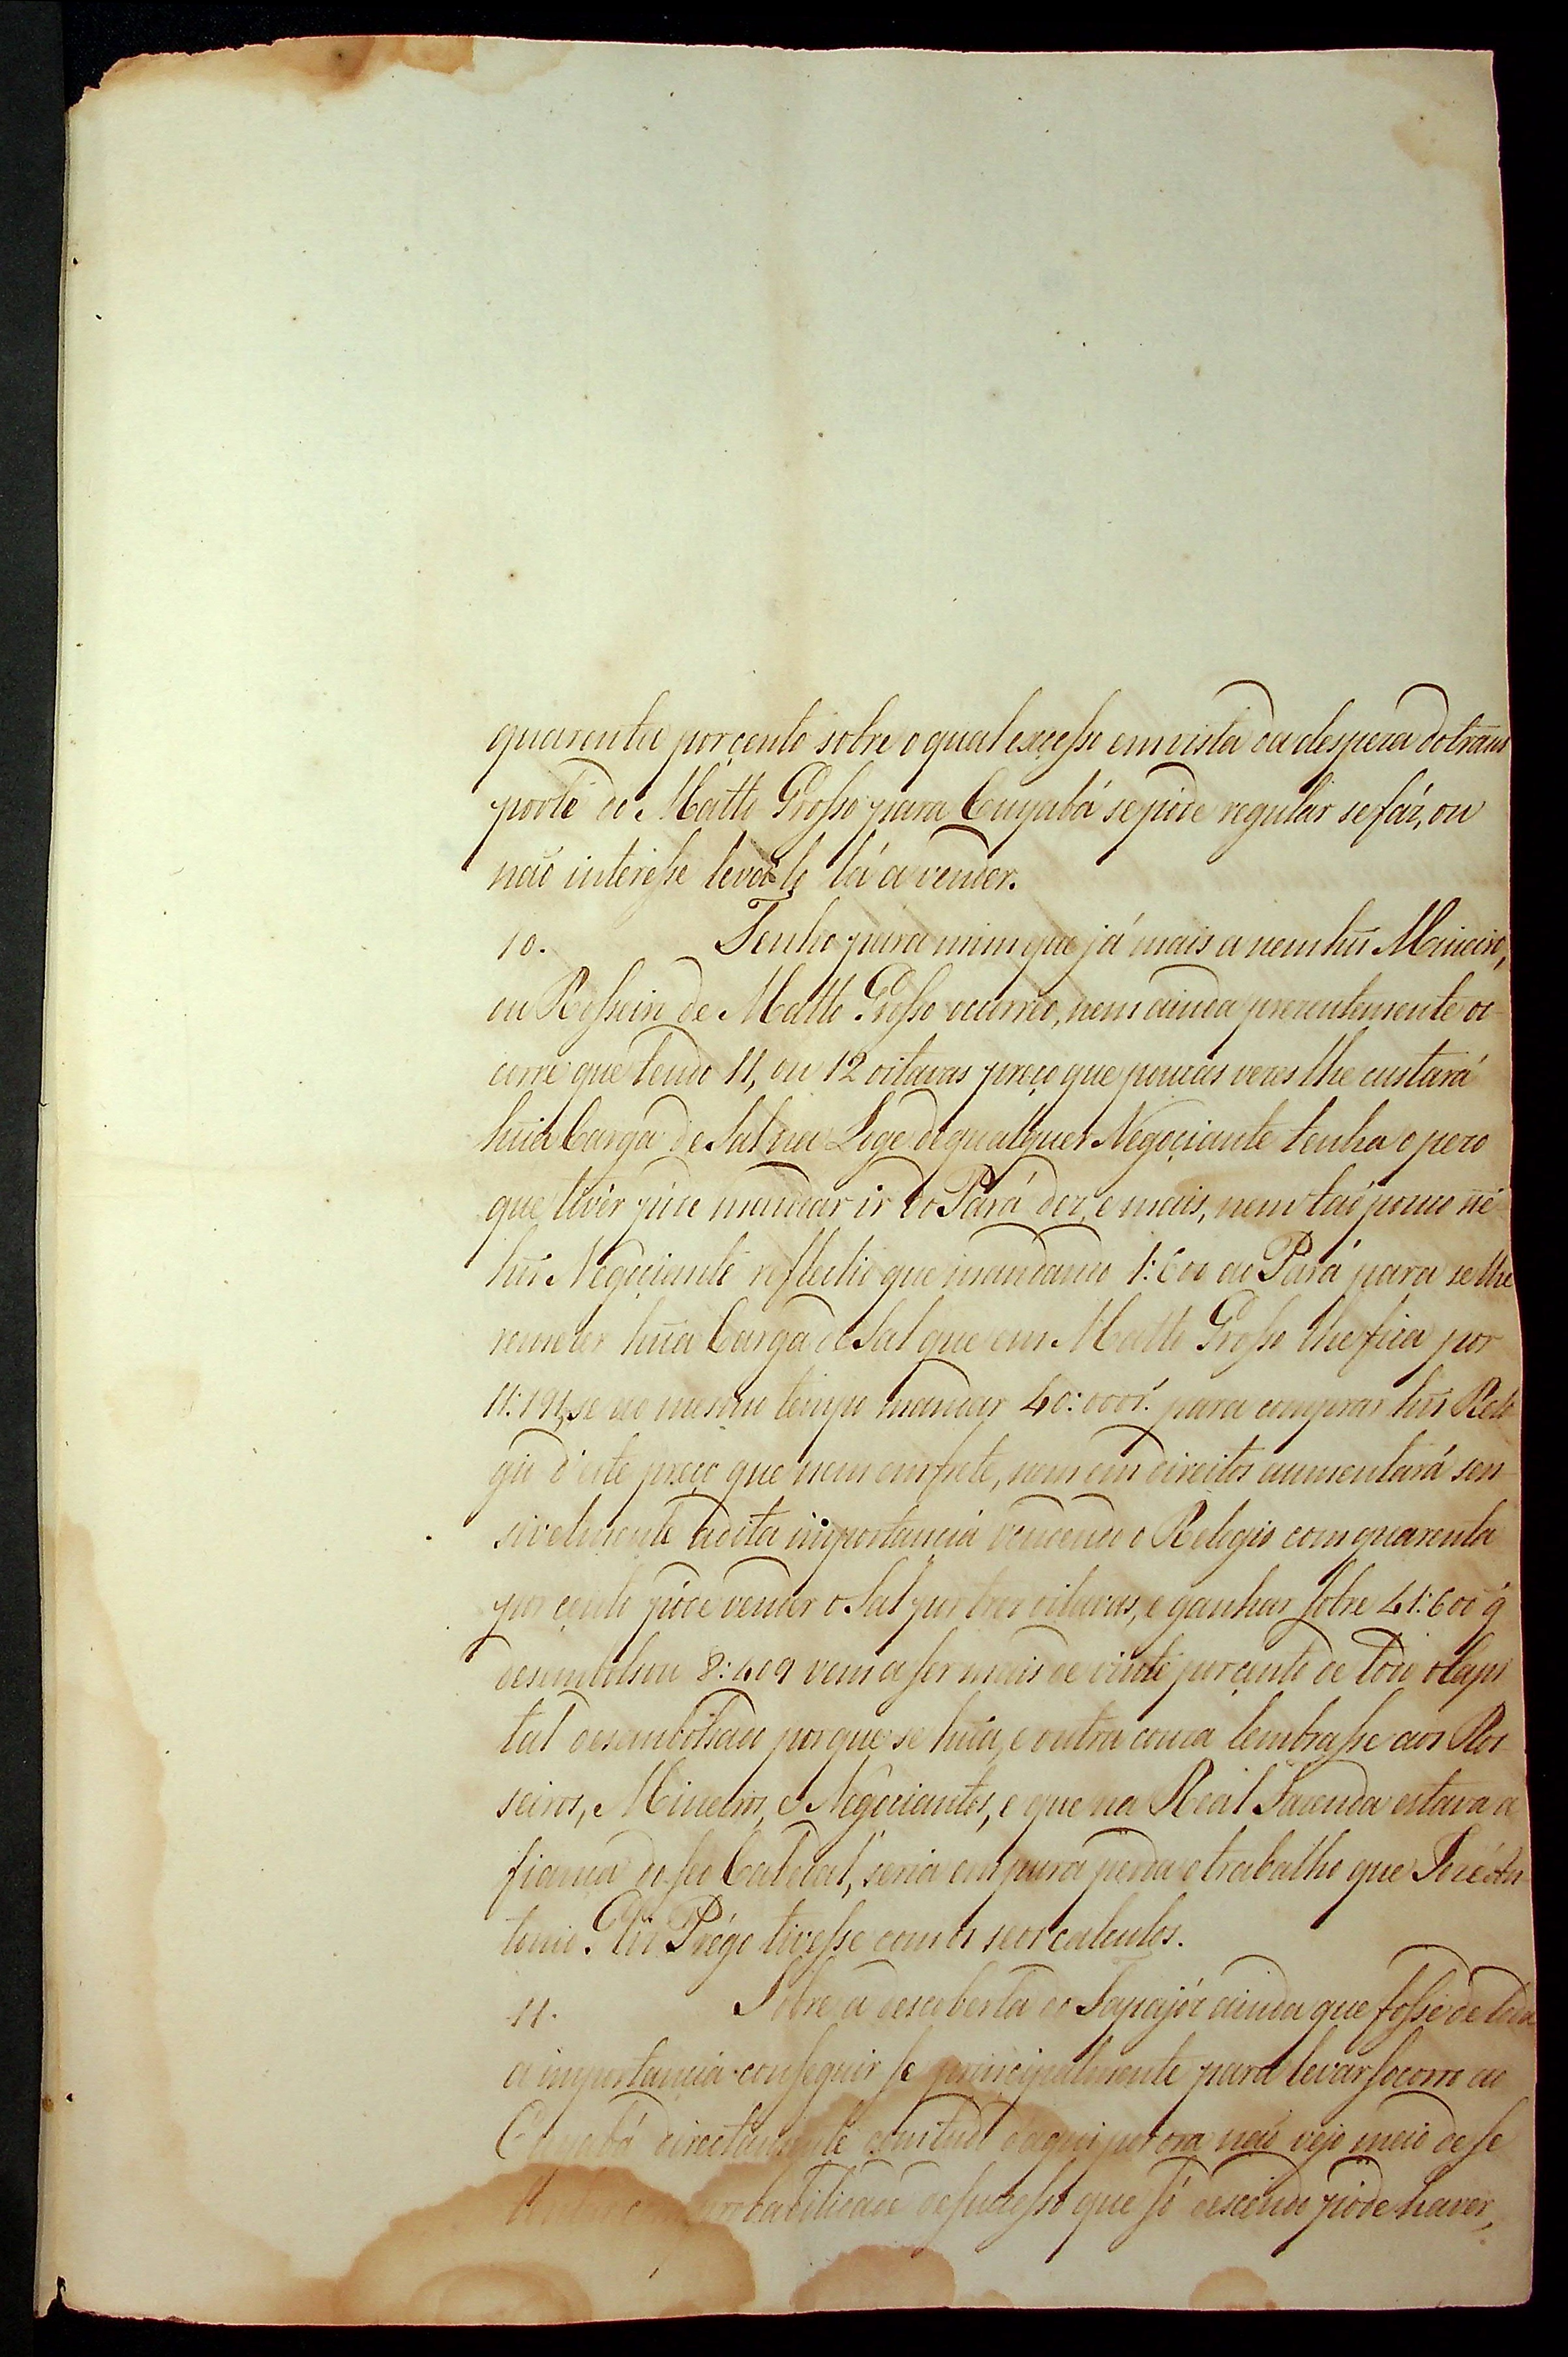 quarenta por çento sobre o qual exçesso em vista da despeza do trans
porte de Matto Grosso para Cuyabá se póde regular se fáz, ou
naõ interesse levalo lá a vender.
10. Tenho para mim que já mais a nem huũ Mineiro,
ou Rosseiro de Matto Grosso ocurreo, nem ainda prezentemente o-
corre que tendo 11, ou 12 oitavas preço que poucas vezes lhe custará
hũa Carga de Sal na Loge de qualquer Negoçiante tenha o pezo
que tiver póde mandar ir do Pará dez, e mais, nem taõ pouco ne-
huũ Negoçiante reflectio que mandando 1:600 ao Pará para se lhe
remeter hũa Carga de Sal que em Matto Grosso lhe fica por
11:191, se ao mesmo tempo mandar 40:000r.ˢ para comprar huũ Relo
gio d'este preço que nem em frete, nem em direitos aumentará sen-
sivelmente a dita importancia vendendo o Relogio com quarenta
por çento póde vender o Sal por trez oitavas, e ganhar sobre 41:600 q̃
desembolsou 8:409 vem a ser mais de vinte por çento de todo o Capi
tal desembolsado porque se hũa, e outra couza lembrasse aos Ros-
seiros, Mineiros, e Negociantes, e que na Real Fazenda estava a
fiança do seo Cabedal, seria em pura perda o trabalho que Jozé An-
tonio Glz Prégo tivesse com os seos calculos.
11. Sobre a descoberta do Tapajóz ainda que fosse de toda
a importançia conseguir se prinçipalmente para levar socorro ao
Cuyabá directamente com tudo d'aqui por ora naõ vejo meio de se
probabilidade de suçesso que só desçendo póde haver,